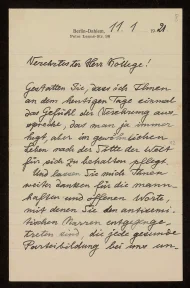 Berlin-Dahlem,
11. 1 1921
Verehrtester Herr Kollege!
Gestatten Sie, dass ich Ihnen
an dem heutigen Tage einmal
das Gefühl der Verehrung aus-
spreche, das man ja immer
hegt, aber im gewöhnlichen
Leben nach der Sitte der Welt
für sich zu behalten pflegt.
Und lassen Sie mich Ihnen
weiter danken für die mann-
haften und offenen Worte,
mit denen Sie den antisemi-
tischen Narren entgegenge-
treten sind, die jede gesunde
Parteibildung bei uns un-